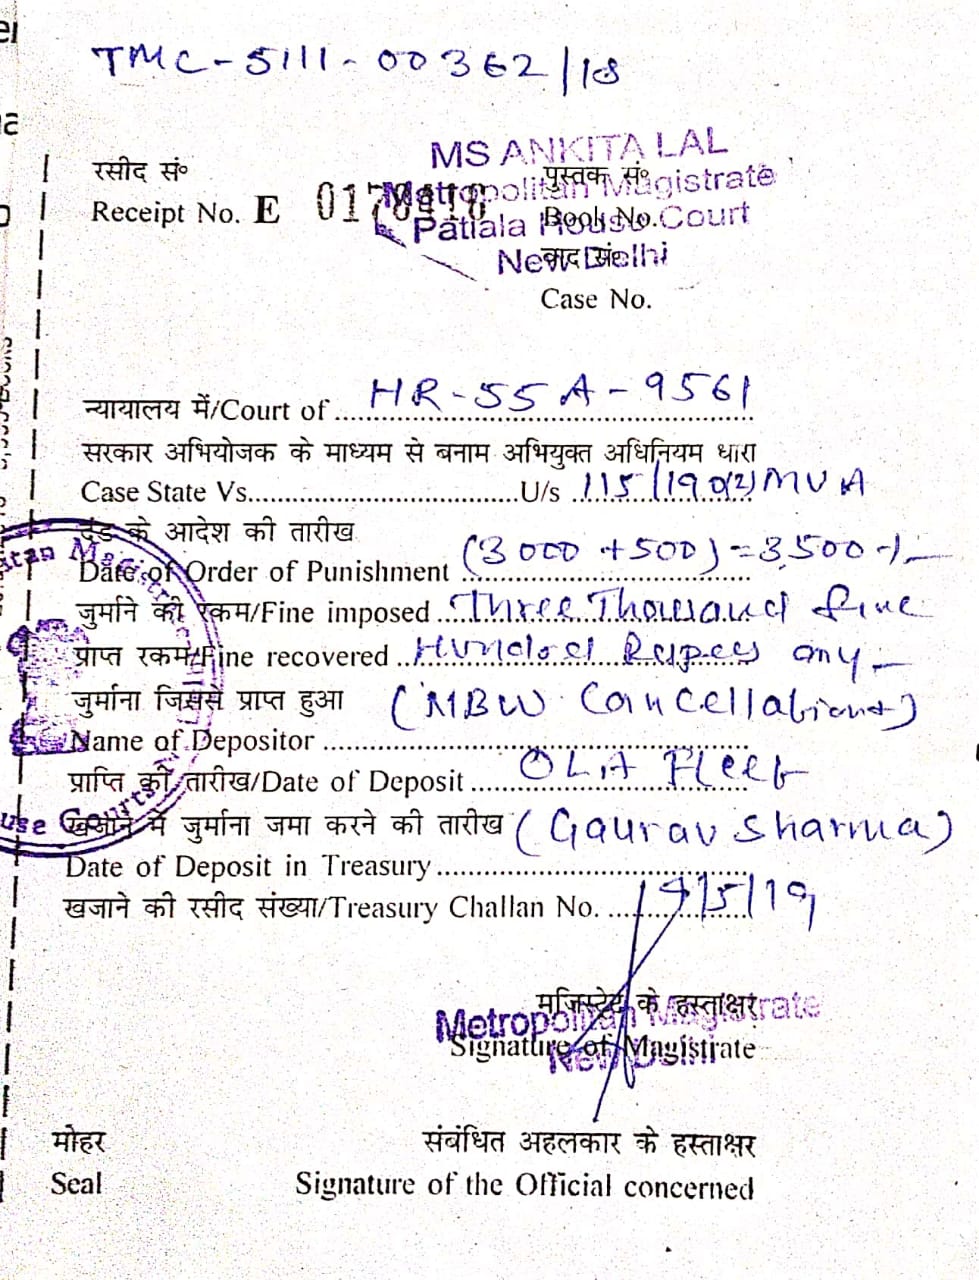 TMC-5111-00362/18
MS ANKITA LAL
रसीद सं०
पुस्तक सं०
Metropolitan Magistrate
Receipt No. E
Book No.
Patiala House Court
वाद सं०
New Delhi
Case No.
न्यायालय में/Court of HR-55A-9561
सरकार अभियोजक के माध्यम से बनाम अभियुक्त अधिनियम धारा
Case State Vs. U/s 115/190(2) MVA
दंड के आदेश की तारीख
Date of Order of Punishment (3000 + 500) = 3,500-/-
जुर्माने की रकम/Fine imposed Three Thousand five
प्राप्त रकम/Fine recovered Hundred Rupees only
जुर्माना जिससे प्राप्त हुआ (MBW
Name of Depositor
प्राप्ति की तारीख/Date of Deposit OLA Fleet
खजाने में जुर्माना जमा करने की तारीख (Gaurav Sharma)
Date of Deposit in Treasury
खजाने की रसीद संख्या/Treasury Challan No. 14/5/19
मजिस्ट्रेट के हस्ताक्षर
Metropolitan Magistrate
Signature of Magistrate
New Delhi
मोहर
संबंधित अहलकार के हस्ताक्षर
Seal
Signature of the Official concerned